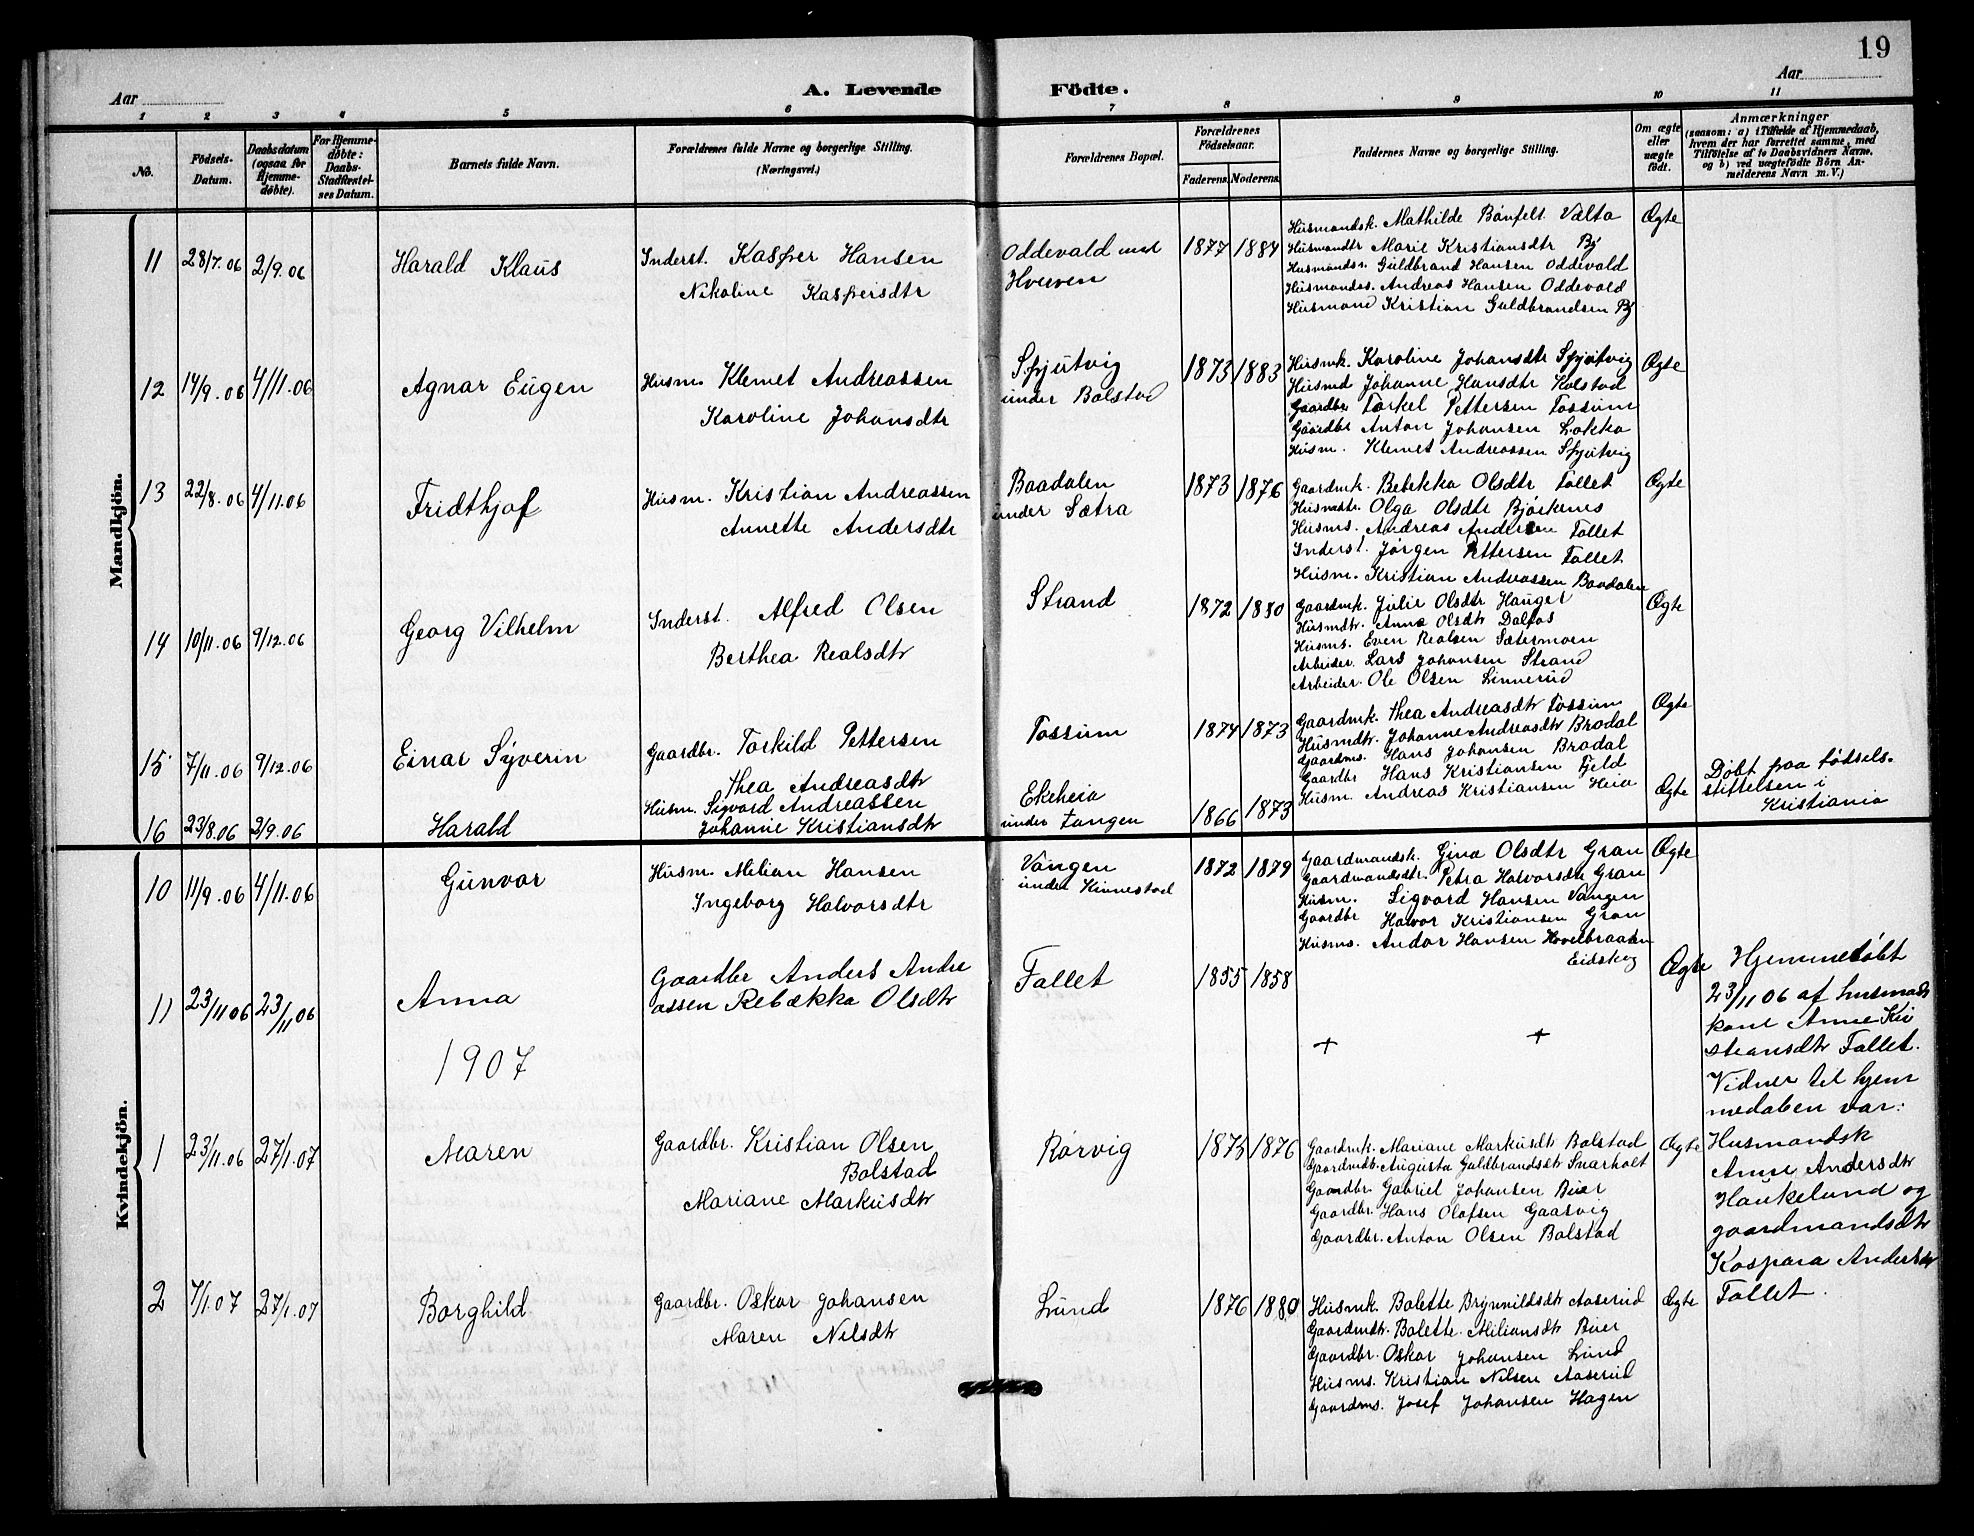 19
Aar
A. Levende Födte.
Aar
1 2 3 4 5 6 7 8 9 10 11
No.
Födsels-Datum.
Daabsdatum (ogsaa for Hjemme-döbte).
For Hjemme-døbte: Daabs-Stadfæstel-ses Datum.
Barnets fulde Navn.
Forældrenes fulde Navne og borgerlige Stilling.
(Næringsvei.)
Forældrenes Bopæl.
Forældrenes Födselsaar.
Faderens. Moderens.
Faddernes Navne og borgerlige Stilling.
Om ægte eller uægte födt.
Anmærkninger
(saasom: a) i Tilfælde af Hjemmedaab,
hvem der har forrettet samme, med
Tilföielse af to Daabsvidners Navne,
og b) ved uægtefödte Börn An-
melderens Navn m. V.)
Mandkjön.
11 28/7.06 2/9.06 Harald Klaus
Inderst. Kasper Hansen
Nikoline Kaspersdtr
Oddevald
1877 1884
Husmandsk. Mathilde Bönfelt Vælta
Husmandtr Marie Kristiansdtr By
Husmandss. Guldbrand Hansen Oddevald
Husmandss. Andreas Hansen Oddevald
Husmand Kristian Guldbrandsen By
Ægte
12 14/9.06 4/11.06 Agnar Eugen
Husm. Klemet Andreassen
Karoline Johansdtr
Spjutvig
under Bolstad
1873 1883
Husmk. Karoline Johansdtr Spjutvig
Husmd Johanne Hansdtr Kolstad
Gaardbr Torkel Pettersen Tossum
Gaardbr Anton Johansen Lokka
Husm. Klemet Andreassen Spjutvig
Ægte
13 22/8.06 4/11.06 Fridthjof
Husm. Kristian Andreassen
Annette Andersdtr
Baadalen
under Sætra
1873 1876
Gaardmk. Rebekka Olsdtr Fallet
Husmdtr. Olga Olsdtr Björkenes
Husms. Andreas Andersen Fallet
Inderst. Jörgen Pettersen Fallet
Husm. Kristian Andreassen Baadalen
Ægte
14 10/11.06 9/12.06 Georg Vilhelm
Inderst. Alfred Olsen
Berthea Realsdtr
Strand
1872 1880
Gaardmk. Julie Olsdtr Hauger
Husmdtr. Anna Olsdtr Dalfos
Husms. Even Realsen Sætermoen
Arbeider. Lars Johansen Strand
Arbeider. Ole Olsen Linnerud
Ægte
15 7/11.06 9/12.06 Einar Syverin
Gaardbr. Torkild Pettersen
Thea Andreasdtr
Tossum
1874 1873
Gaardmk. Thea Andreasdtr Tossum
Husmdtr. Johanne Andreasdtr Brodal
Gaardms. Hans Johansen Brodal
Gaardbr Hans Kristiansen Fjeld
Husm. Andreas Kristiansen Heia
Ægte
16 23/8.06 2/9.06 Harald
Husm. Sigvard Andreassen
Johanne Kristiansdtr
Ekeheia
under Tangen
1866 1873
Ægte
Döbt paa födsels-
stiftelsen i
Kristiania
Kvindekjön.
10 11/9.06 4/11.06 Gunvor
Husm. Milian Hansen
Ingeborg Halvorsdtr
Vangen
under Kinnestad
1872 1879
Gaardmandsk. Gina Olsdtr Gran
Gaardmandsdtr. Petra Halvorsdtr Gran
Husm. Sigvard Hansen Vangen
Gaardbr Halvor Kristiansen Gran
Husms. Andor Hansen Hovelbraaten
Eidskog
Ægte
11 23/11 06 23/11 06 Anna
Gaardbr Anders Andre
assen Rebækka Olsdtr
Fallet
1855 1858
+ +
Ægte
Hjemmedöbt
23/11 06 af husmads
kone Anne Kri
stiansdtr Fallet.
Vidner til hjem
medaben var:
Husmandsk
Anne Andersdtr
Haukelund og
gaardmandsdtr
Kaspara Andersdtr
Fallet.
1907
1 23/11.06 27/1.07 Maren
Gaardbr. Kristian Olsen
Bolstad
Mariane Markusdtr
Rörvig
1875 1876
Gaardmk. Mariane Markusdtr Bolstad
Gaardmdtr. Augusta Guldbrandsdtr Snarholt
Gaardbr Gabriel Johansen Buer
Gaardbr. Hans Olafsen Gaasvig
Gaardbr. Anton Olsen Bolstad
Ægte
2 7/1.07 27/1.07 Borghild
Gaardbr. Oskar Johansen
Maren Nilsdtr
Lund
1876 1880
Husmk. Bolette Brynnildsdtr Aaserud
Gaardmdtr. Bolette Miliansdtr Buer
Gaardbr. Oskar Johansen Lund
Husms. Kristian Nilsen Aaserud
Gaardms. Josef Johansen Hagen
Ægte